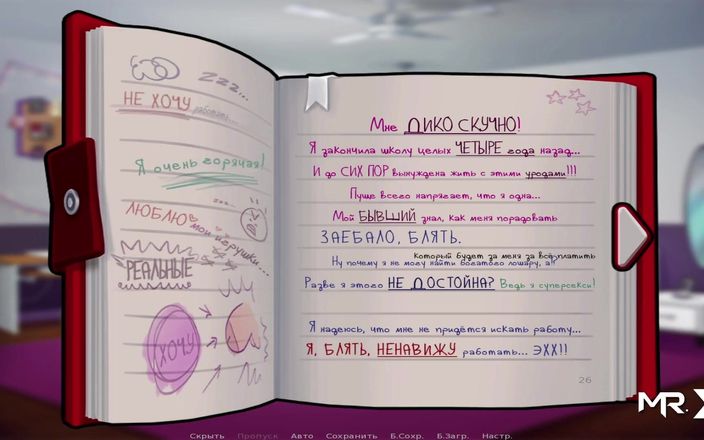 zzz...
НЕ ХОЧУ
работать...
Я очень горячая!
ЛЮБЛЮ
мои игрушки...
РЕАЛЬНЫЕ
ХОЧУ
Мне ДИКО СКУЧНО!
Я закончила школу целых ЧЕТЫРЕ года назад...
И до СИХ ПОР вынуждена жить с этими уродами!!!
Пуще всего напрягает, что я одна...
Мой БЫВШИЙ знал, как меня порадовать
ЗАЕБАЛО, БЛЯТЬ.
Который будет за меня за всё платить
Ну почему я не могу найти богатого лошару, а?
Разве я этого НЕ ДОСТОЙНА? Ведь я суперсекси!
Я надеюсь, что мне не придётся искать работу...
Я, БЛЯТЬ, НЕНАВИЖУ работать... ЭХХ!!
26
MR.X
Скрыть Пропуск Авто Сохранить Б.Сохр. Б.Загр. Настр.